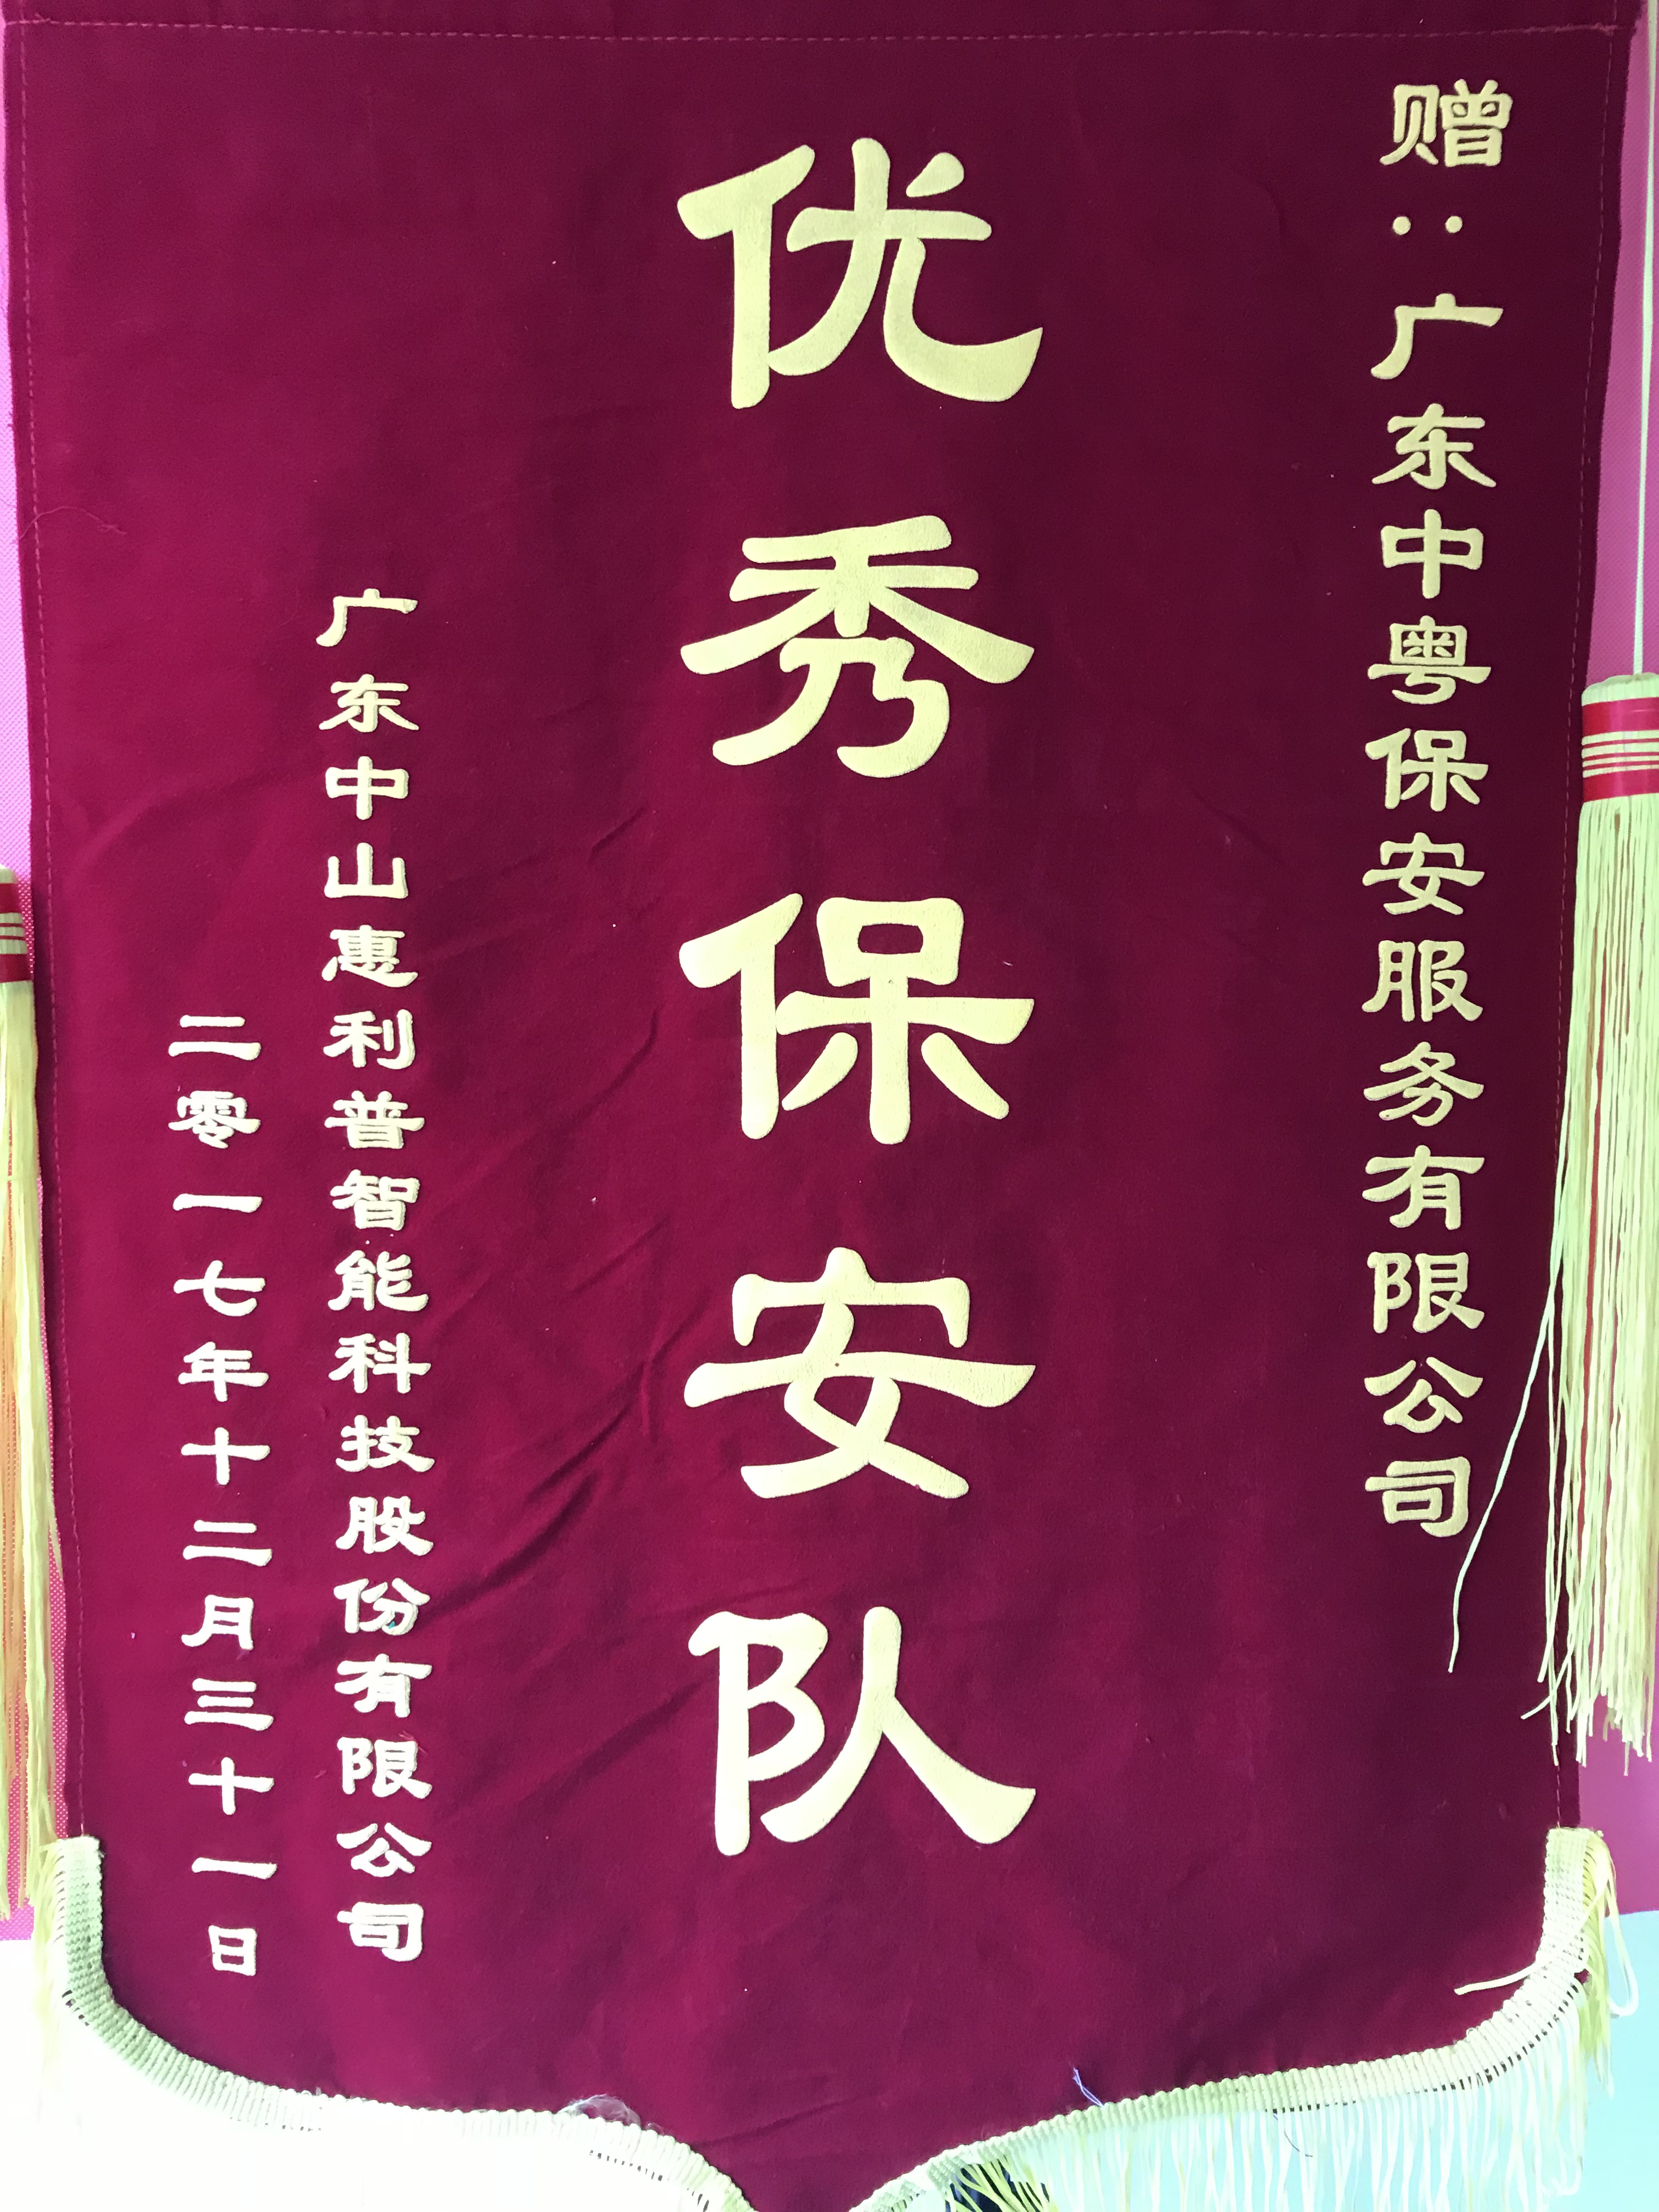 赠：广东中粤保安服务有限公司
优秀保安队
广东中山惠利普智能科技股份有限公司
二零一七年十二月三十一日